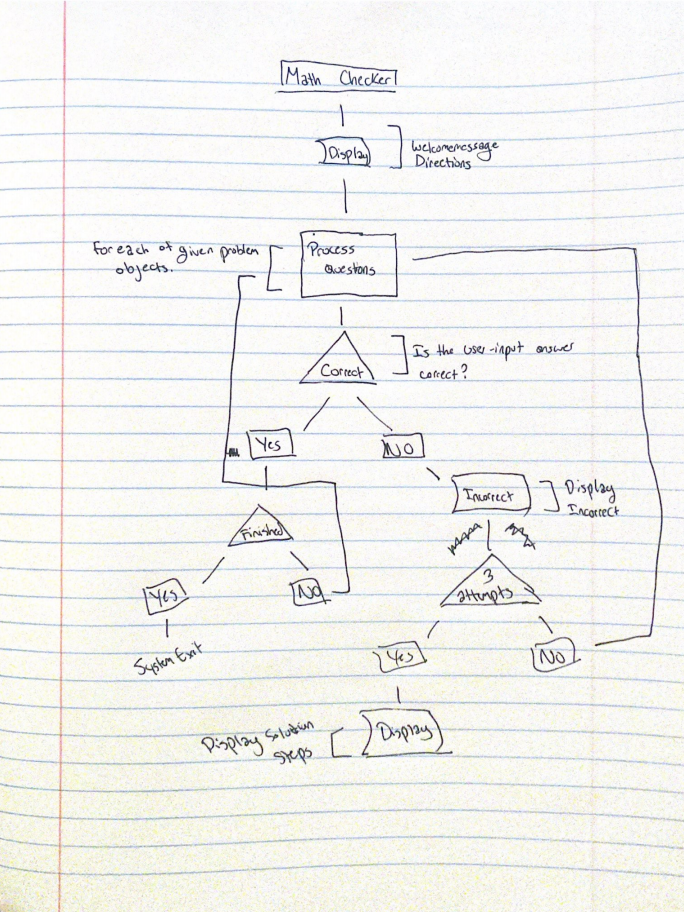 Math Checker
Display
Welcomemessage
Directions
For each of given problem
objects.
Process
Questions
Correct
Is the user-input answer
correct?
Yes
NO
Incorrect
Display
Incorrect
Finished
3
attempts
Yes
No
System Exit
Yes
No
Display Solution
Steps
Display